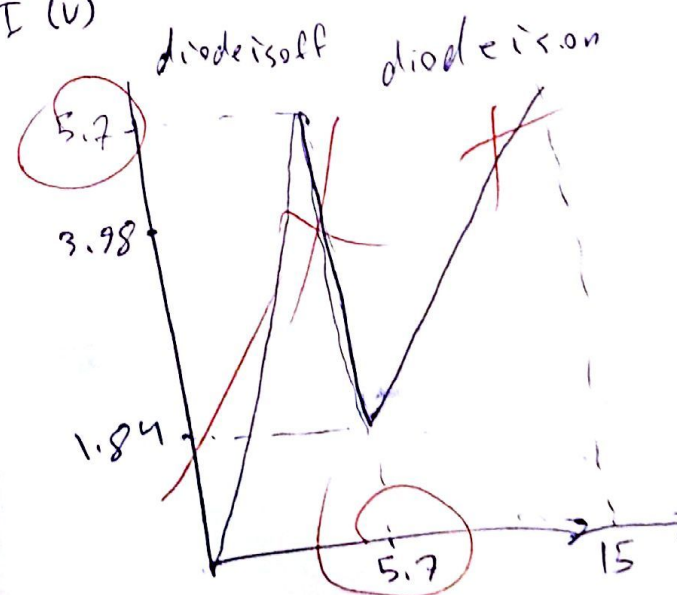 I (V)
diode is off diode is on
5.7
3.98
1.84
5.7
15